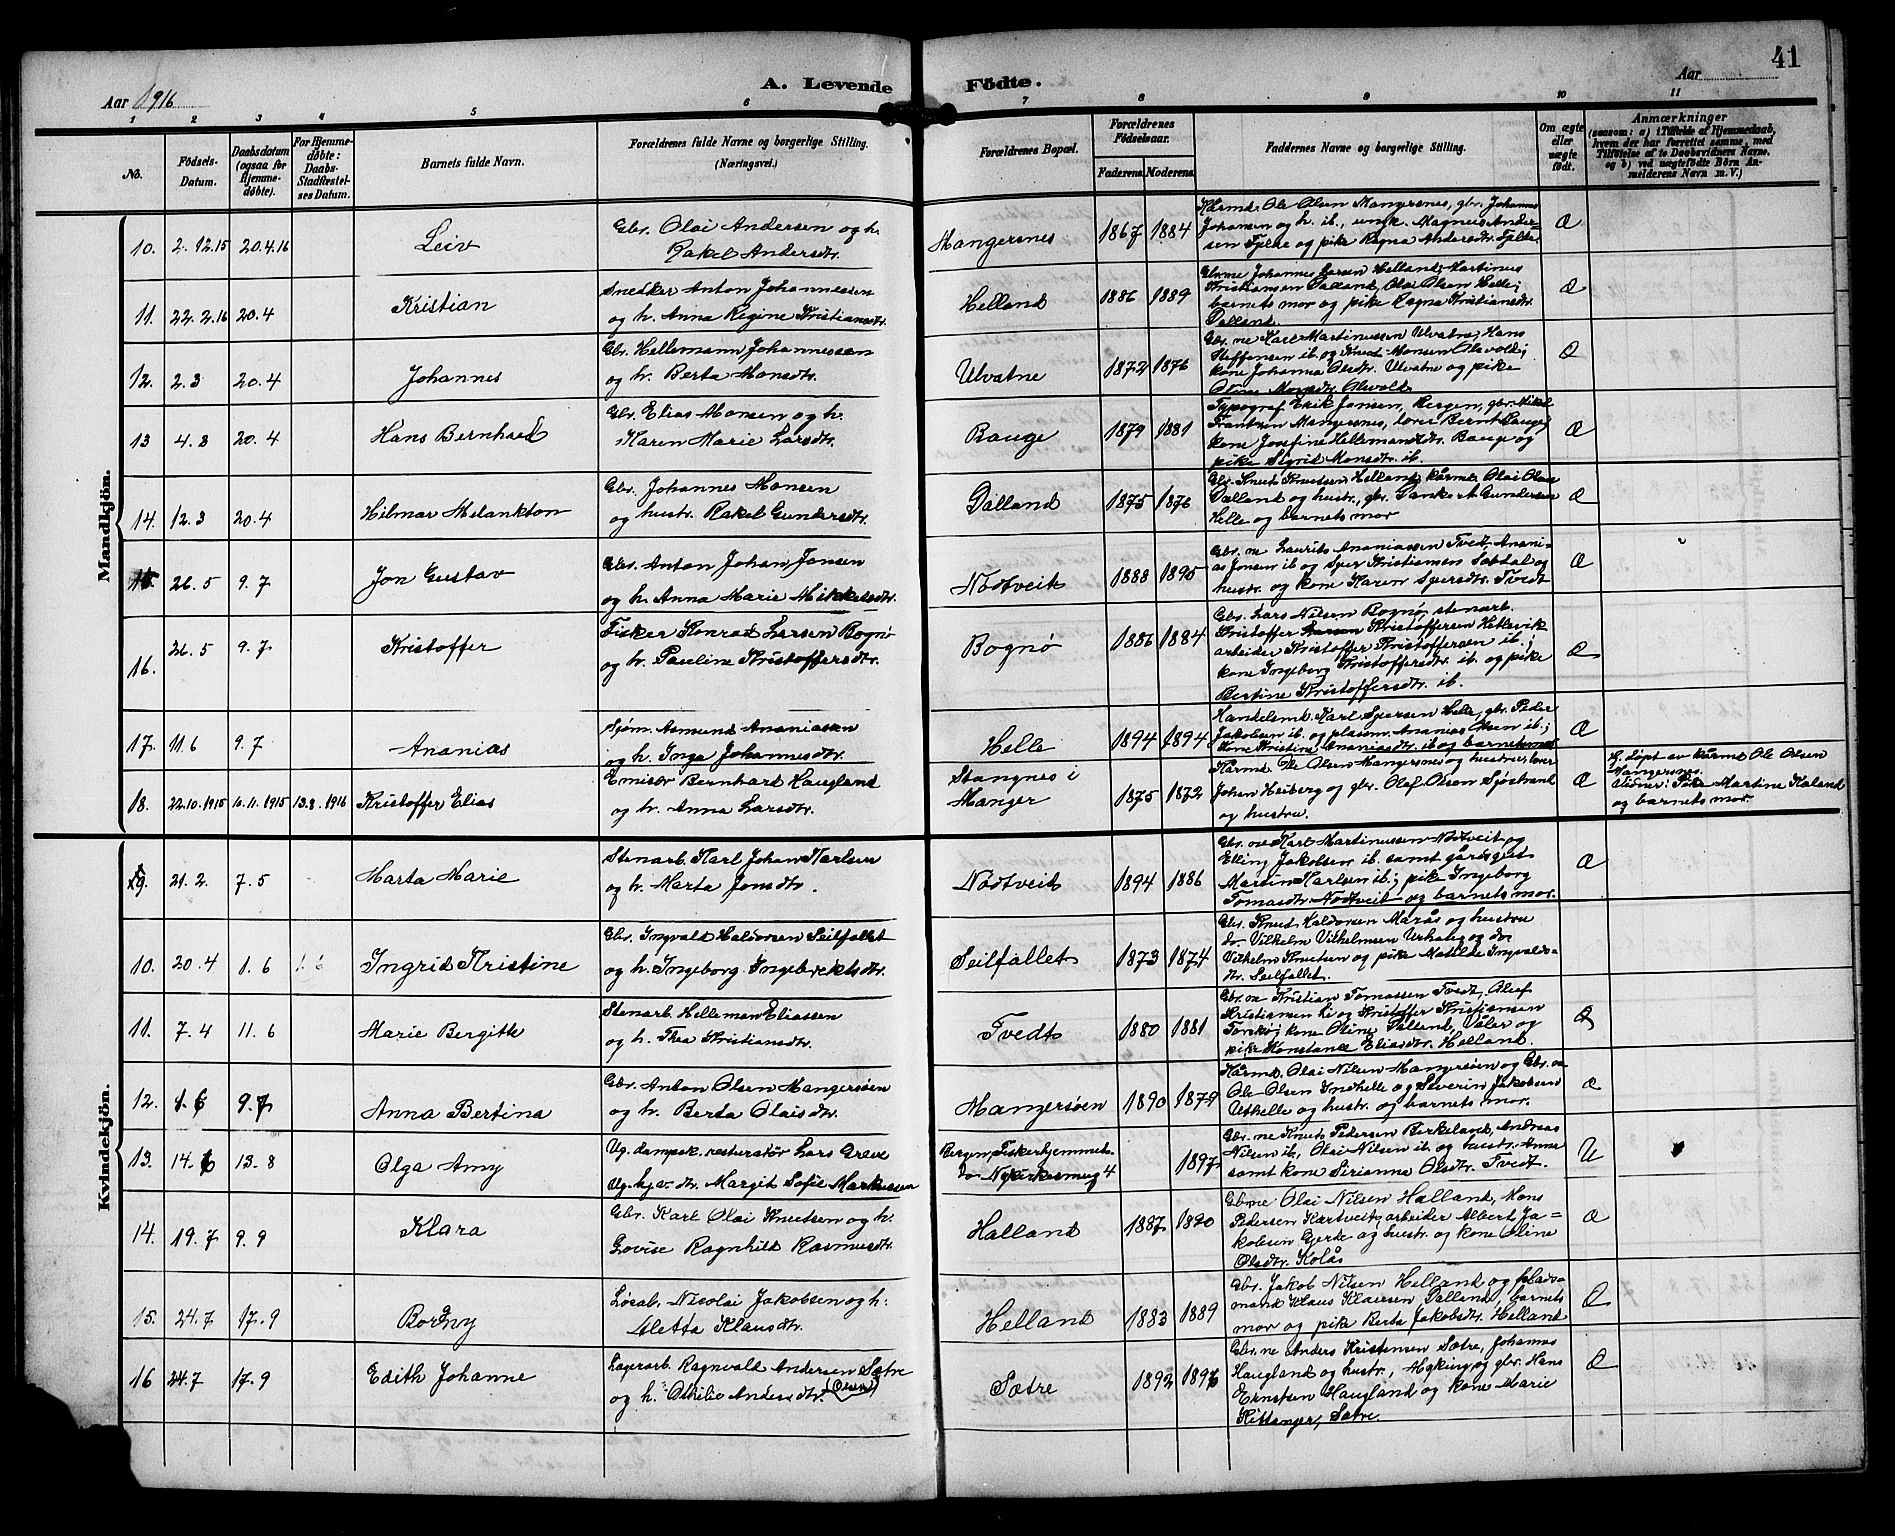 41
Aar 1916
A. Levende Födte.
Aar
1 2 3 4 5 6 7 8 9 10 11
No.
Födsels-Datum.
Daabsdatum (ogsaa for Hjemmedöbte).
For Hjemmedøbte: Daabs-Stadfæstelses Datum.
Barnets fulde Navn.
Forældrenes fulde Navne og borgerlige Stilling. (Næringsvei.)
Forældrenes Bopæl.
Forældrenes Födselsaar.
Faderens. Moderens.
Faddernes Navne og borgerlige Stilling.
Om ægte eller uægte födt.
Anmærkninger
(saasom: a) i Tilfælde af Hjemmedaab, hvem der har forrettet samme, med Tilföielse af to Daabsvidners Navne, og b) ved uægtefödte Börn Anmelderens Navn m. V.)
Mandkjön.
10. 2.12.15 20.4.16 Leiv Gbr. Olai Andersen og h. Rakel Andersdtr. Mangersnes 1867 1884 Kårmd. Ole Olsen Mangersnes, gbr. Johannes Johansen og h. ib., ungk. Magnus Andersen Fjelde og pike Ragna Andersdtr. Fjelde. Æ
11. 22.2.16 20.4 Kristian Snedker Anton Johannessen og h. Anna Regine Kristiansdtr. Helland 1886 1889 Gbr.ne Johannes Larsen Helland, Martinus Kristiansen Dalland, Olai Olsen Helle; barnets mor og pike Ragna Kristiansdtr. Dalland. Æ
12. 2.3 20.4 Johannes Gbr. Hellemann Johannessen og h. Berta Monsdtr. Ulvatne 1872 1876 Gbr.ne Karl Martinussen Ulvatne, Hans Steffensen ib. og Knut Monsen Olsvold; kone Johanna Olsdtr. Ulvatne og pike Oline Monsdtr. Olsvold. Æ
13 4.3 20.4 Hans Bernhard Gbr. Elias Monsen og h. Karen Marie Larsdtr. Bauge 1879 1881 Typograf Erik Jansen, Bergen, gbr. Mikal Frantsen Mangersnes, lærer Bernt Bauge, kone Josefine Hellemansdtr. Bauge og pike Sigrid Monsdtr. ib. Æ
14. 12.3 20.4 Hilmar Melankton Gbr. Johannes Monsen og hustr. Rakel Gundersdtr. Dalland 1875 1876 Gbr. Knut Knutsen Helland, kårmd. Olai Olsen Dalland og hustr., gbr. Danke M Gundersen Helle og barnets mor Æ
15. 26.5 9.7 Jon Gustav Gbr. Anton Johan Jonsen og h. Anna Marie Mikkelsdtr. Nødtveit 1888 1895 Gbr.ne Laurits Ananiassen Tvedt, Ananias Jonsen ib og Sjur Kristiansen Sætdal og hustr. og kone Karen Sjursdtr. Tvedt Æ
16. 26.5 9.7 Kristoffer Fisker Konrad Larsen Bognø og h. Pauline Kristoffersdtr. Bognø 1886 1884 Gbr. Lars Nilsen Bognø, stenarb. Kristoffer Kristoffersen Hetlevik arbeider Kristoffer Kristoffersen ib.; kone Ingeborg Kristoffersdtr. ib. og pike Bertine Kristoffersdtr. ib. Æ
17. 11.6 9.7 Ananias Sjøm. Asmund Ananiassen og h. Inga Johannesdtr. Helle 1894 1894 Handelsmd. Karl Sjursen Helle, gbr. Peder Jakobsen ib. og plasm. Ananias Olsen ib.; kone Kristine Ananiasdtr. ib og barnets mor Æ
18. 22.10.1915 10.11.1915 13.8.1916 Kristoffer Elias Emissær Bernhard Haugland og h. Anna Larsdtr. Stangnes i Manger 1875 1872 Kårmd. Ole Olsen Mangersnes og hustru, lærer Johan Heiberg og gbr. Olaf Olson Sjøstrand og hustru. Æ Hj. døpt av kårmd Ole Olsen Mangersnes. Vidner: Pike Martine Kaland og barnets mor.
Kvindekjön.
9. 21.2. 7.5 Marta Marie Stenarb. Karl Johan Karlsen og h. Marta Jonsdtr. Nødtveit 1894 1886 Gbr.ne Karl Martinussen Nødtveit og Elling Jakobsen ib. samt gårdsgut Martin Karlsen ib.; pike Ingeborg Tomasdtr. Nødtveit og barnets mor. Æ
10. 20.4 1.6 1.6 Ingrid Kristine Gbr. Ingvald Haldorsen Seilfallet og h. Ingeborg Ingebrektsdtr. Seilfallet 1873 1874 Gbr. Knut Haldorsen Marås og hustru do. Vilhelm Vilhelmsen Urhaug og do. Vilhelm Knutsen og pike Matilde Ingvaldsdtr. Seilfallet.
11. 7.4 11.6 Marie Bergitte Stenarb. Hellemen Eliassen og h. Thea Kristiansdtr. Tvedt 1880 1881 Gbr.ne Kristian Tomassen Tvedt, Oluf Kristiansen Li og Kristoffer Kristiansen Torskø; kone Oline Dalland, Valer og pike Konstanse Eliasdtr. Helland. Æ
12. 1.6 9.7 Anna Bertina Gbr. Anton Olsen Mangersøen og h. Berta Olaisdtr. Mangersøen 1890 1879 Kårmd. Olai Nilsen Mangersøen og Gbr.ne Ole Olsen Indhelle og Severin Jakobsen Uthelle og hustr. og barnets mor. Æ
13. 14.6 13.8 Olga Amy Ug. dampsk.resturatør Lars Greve Ug. hjv. dtr. Margit Sofie Markussen Bergen, Fiskerhjemmet do. Nykirkesmug 4 1897 Gbr.ne Knut Pedersen Birkeland, Andreas Nilsen ib., Olai Nilsen ib. og hustr. Anna samt kone Sirianna Olsdtr. Tvedt. U
14. 19.7 9.9 Klara Gbr. Karl Olai Knutsen og h. Lovise Ragnhild Rasmusdtr. Halland 1887 1890 Gbr.ne Olai Nilsen Halland, Mons Pedersen Kartveit, arbeider Albert Jakobsen Gjerde og hustr. og kone Oline Olsdtr. Kolås Æ
15. 24.7 17.9 Borgny Løsarb. Nicolai Jakobsen og h. Aletta Klausdtr. Helland 1883 1889 Gbr. Jakob Nilsen Helland og pladsmand Klaus Klausen Dalland, barnets mor og pike Berta Jakobsdtr. Helland Æ
16 24.7 17.9 Edith Johanne Lagerarb. Ragnvald Andersen Sætre og h. Othilie Andersdtr. (Olsen) Sætre 1892 1896 Gbr.ne Anders Kristensen Sætre, Johannes Haugland og hustr., Myking og gbr. Hans Ernstsen Haugland og kone Marie Kittanger, Sætre. Æ